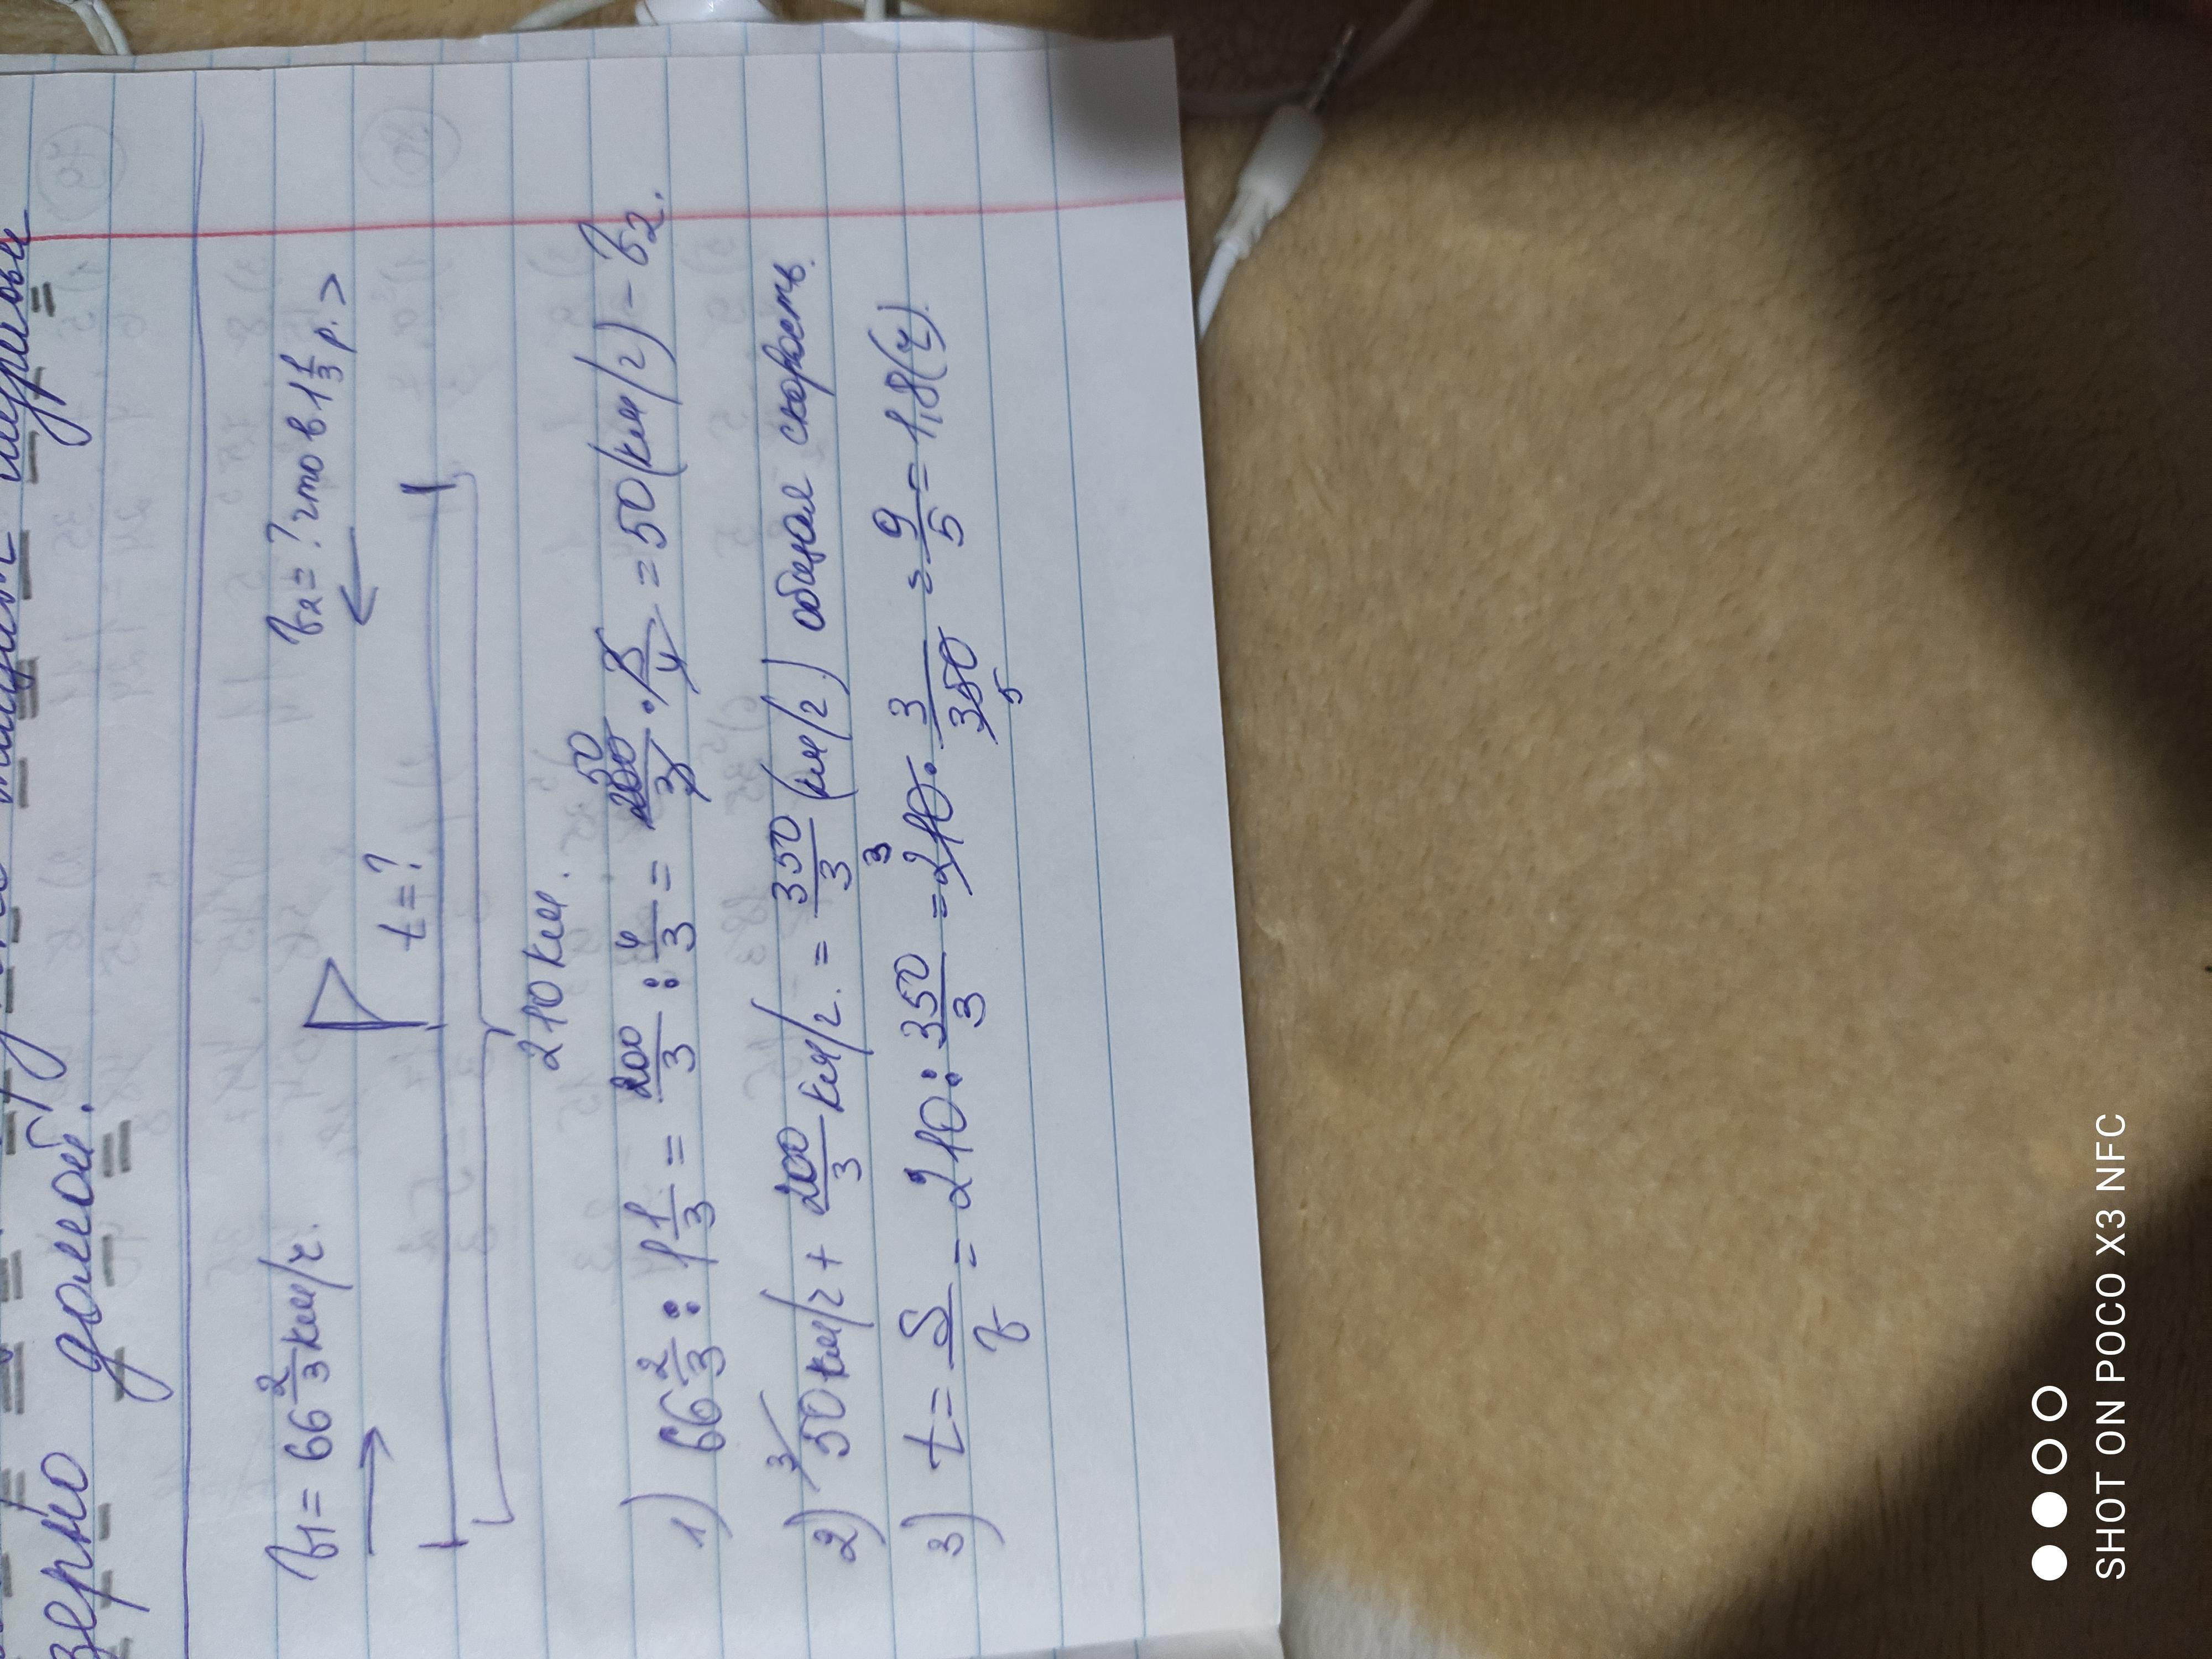 зерно домой.
v₁ = 66 2/3 км/ч. v₂ = ? что в 1 1/3 р. >
t = ?
210 км.
1) 66 2/3 : 1 1/3 = 200/3 : 4/3 = 200/3 · 3/4 = 50 (км/ч) - v₂.
50
2) 50 км/ч + 200/3 км/ч. = 350/3 (км/ч) общая скорость.
3
3) t = S/v = 210 : 350/3 = 210 · 3/350 = 9/5 = 1,8 (ч).
3
5
SHOT ON POCO X3 NFC